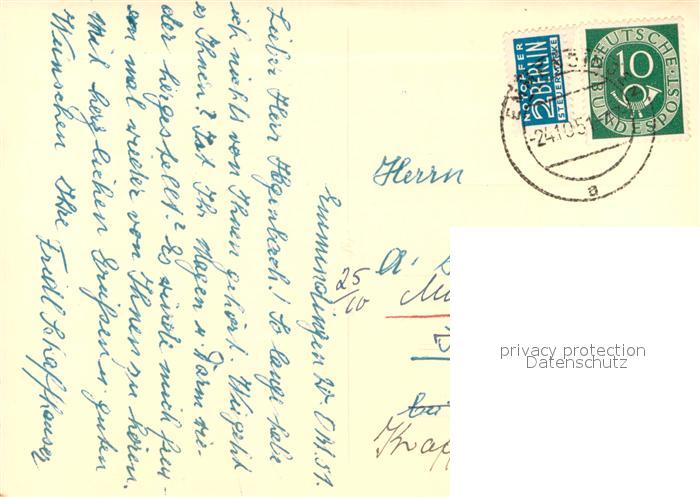 Emmendingen 24. Okt. 51.
Lieber Herr Hagenbach! So lange habe
ich nichts von Ihnen gehört. Wie geht
es Ihnen? Ist Ihr Magen u. Darm wie-
der hergestellt? Es würde mich freu-
en mal wieder von Ihnen zu hören.
Mit herzlichen Grüßen u. guten
Wünschen Ihre Friedl Schaffhauser
NOTOPFER
2 BERLIN
STEUERMARKE
DEUTSCHE
10
BUNDESPOST
-24.10.51
a
Herrn
25/10
A.
privacy protection
Datenschutz